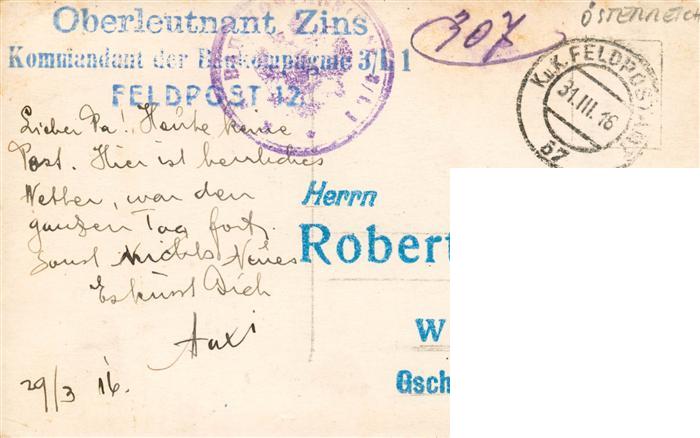 Oberleutnant Zins
Kommandant der Baukompagnie 3/L 1
FELDPOST 12
307
ÖSTERREICH
K.u.K. FELDPOSTAMT
31.III.16
57
Lieber Pa! Heute keine
Post. Hier ist herrliches
Wetter, war den
ganzen Tag fort,
sonst nichts Neues
Es küsst Dich
29/3 16.
Herrn
Robert
W
Gsch